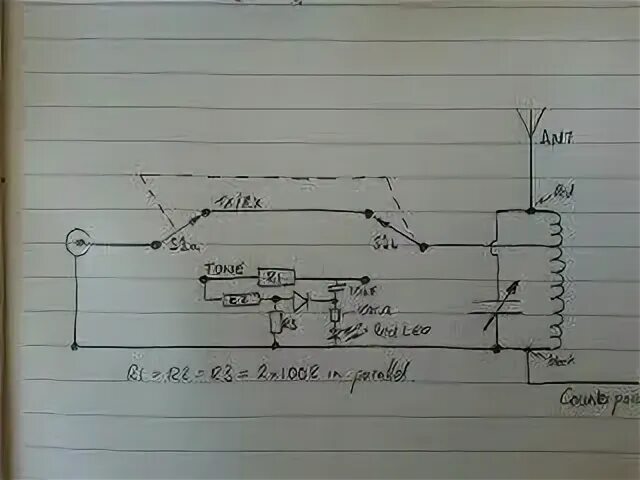 ANT
Red
TX/RX
S1a
S1b
TONE
R1
R2
R3
Red LED
R1 = R2 = R3 = 2x100Ω in parallel
Black